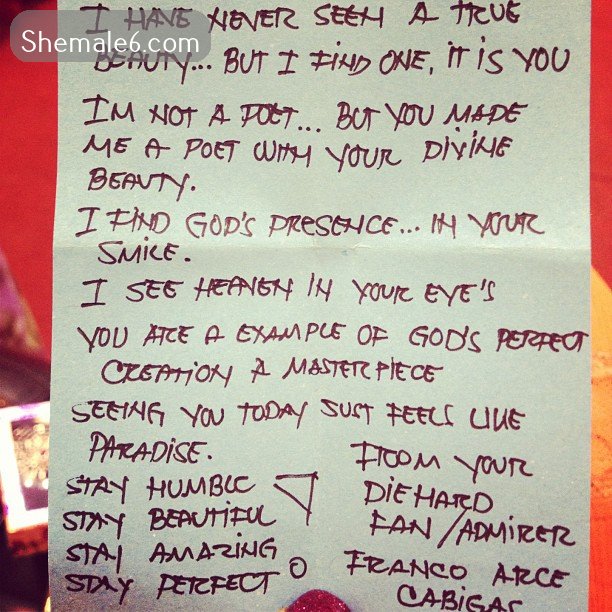 I HAVE NEVER SEEN A TRUE
Shemale6.com
BEAUTY... BUT I FIND ONE, IT IS YOU
IM NOT A POET... BUT YOU MADE
ME A POET WITH YOUR DIVINE
BEAUTY.
I FIND GOD'S PRESENCE... IN YOUR
SMILE.
I SEE HEAVEN IN YOUR EYE'S
YOU ARE A EXAMPLE OF GOD'S PERFECT
CREATION A MASTERPIECE
SEEING YOU TODAY JUST FEELS LIKE
PARADISE.
STAY HUMBLE
STAY BEAUTIFUL
STAY AMAZING
STAY PERFECT
FROM YOUR
DIEHARD
FAN/ADMIRER
FRANCO ARCE
CABIGAS